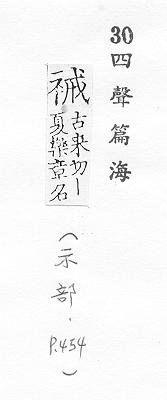 30 四聲篇海
祴
古來切｜
夏樂章名
（示部．P.454）